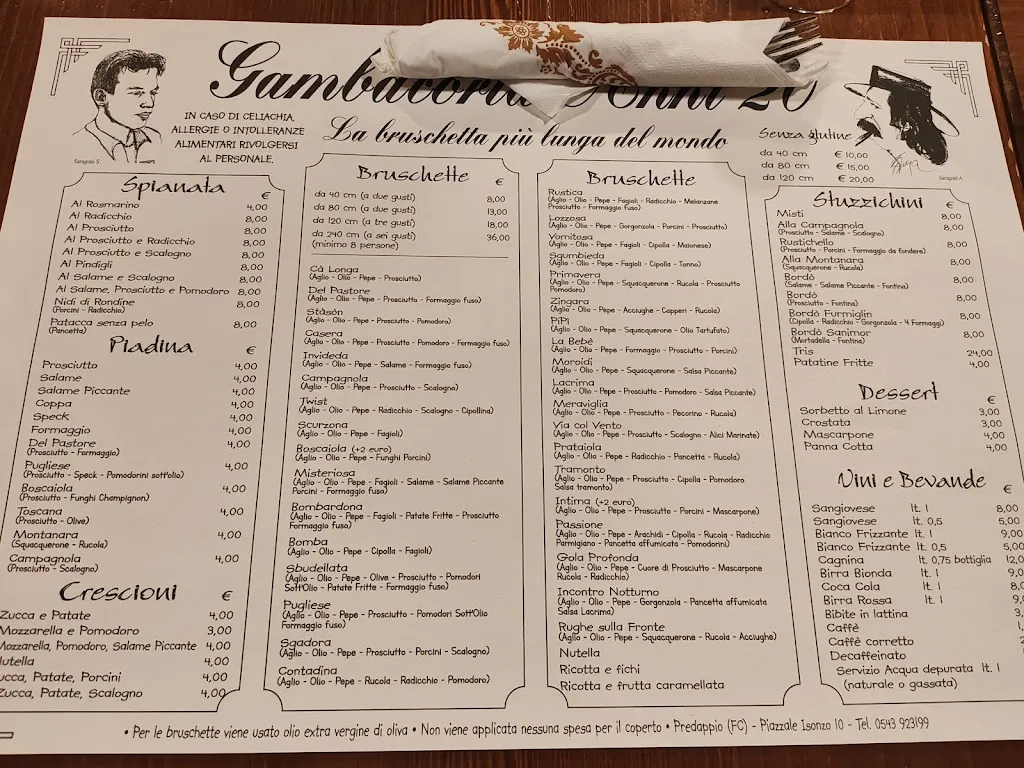 Gambacorta Anni 20
La bruschetta più lunga del mondo
IN CASO DI CELIACHIA,
ALLERGIE O INTOLLERANZE
ALIMENTARI RIVOLGERSI
AL PERSONALE.
Saragoni S.
Senza glutine
da 40 cm € 10,00
da 80 cm € 15,00
da 120 cm € 20,00
Saragoni A.
Spianata
€
Al Rosmarino 4,00
Al Radicchio 8,00
Al Prosciutto 8,00
Al Prosciutto e Radicchio 8,00
Al Prosciutto e Scalogno 8,00
Al Pindigli 8,00
Al Salame e Scalogno 8,00
Al Salame, Prosciutto e Pomodoro 8,00
Nidi di Rondine 8,00
(Porcini - Radicchio)
Patacca senza pelo 8,00
(Pancetta)
Piadina
€
Prosciutto 4,00
Salame 4,00
Salame Piccante 4,00
Coppa 4,00
Speck 4,00
Formaggio 4,00
Del Pastore 4,00
(Prosciutto - Formaggio)
Pugliese 4,00
(Prosciutto - Speck - Pomodorini sott'olio)
Boscaiola 4,00
(Prosciutto - Funghi Champignon)
Toscana 4,00
(Prosciutto - Olive)
Montanara 4,00
(Squacquerone - Rucola)
Campagnola 4,00
(Prosciutto - Scalogno)
Crescioni
€
Zucca e Patate 4,00
Mozzarella e Pomodoro 3,00
Mozzarella, Pomodoro, Salame Piccante 4,00
Nutella 4,00
Zucca, Patate, Porcini 4,00
Zucca, Patate, Scalogno 4,00
Bruschette
€
da 40 cm (a due gusti) 8,00
da 80 cm (a due gusti) 13,00
da 120 cm (a tre gusti) 18,00
da 240 cm (a sei gusti) 36,00
(minimo 8 persone)
Cà Longa
(Aglio - Olio - Pepe - Prosciutto)
Del Pastore
(Aglio - Olio - Pepe - Prosciutto - Formaggio fuso)
Stàsòn
(Aglio - Olio - Pepe - Prosciutto - Pomodoro)
Casera
(Aglio - Olio - Pepe - Prosciutto - Pomodoro - Formaggio fuso)
Invideda
(Aglio - Olio - Pepe - Salame - Formaggio fuso)
Campagnola
(Aglio - Olio - Pepe - Prosciutto - Scalogno)
Twist
(Aglio - Olio - Pepe - Radicchio - Scalogno - Cipollina)
Scurzona
(Aglio - Olio - Pepe - Fagioli)
Boscaiola (+2 euro)
(Aglio - Olio - Pepe - Funghi Porcini)
Misteriosa
(Aglio - Olio - Pepe - Fagioli - Salame - Salame Piccante
Porcini - Formaggio fuso)
Bombardona
(Aglio - Olio - Pepe - Fagioli - Patate Fritte - Prosciutto
Formaggio fuso)
Bomba
(Aglio - Olio - Pepe - Cipolla - Fagioli)
Sbudellata
(Aglio - Olio - Pepe - Olive - Prosciutto - Pomodori
Sott'Olio - Patate Fritte - Formaggio fuso)
Pugliese
(Aglio - Olio - Pepe - Prosciutto - Pomodori Sott'Olio
Formaggio fuso)
Sgadora
(Aglio - Olio - Pepe - Prosciutto - Porcini - Scalogno)
Contadina
(Aglio - Olio - Pepe - Rucola - Radicchio - Pomodoro)
Bruschette
Rustica
(Aglio - Olio - Pepe - Fagioli - Radicchio - Melanzane
Prosciutto - Formaggio fuso)
Lozzosa
(Aglio - Olio - Pepe - Gorgonzola - Porcini - Prosciutto)
Vomitosa
(Aglio - Olio - Pepe - Fagioli - Cipolla - Maionese)
Sgumbieda
(Aglio - Olio - Pepe - Fagioli - Cipolla - Tonno)
Primavera
(Aglio - Olio - Pepe - Squacquerone - Rucola - Prosciutto
Pomodoro)
Zingara
(Aglio - Olio - Pepe - Acciughe - Capperi - Rucola)
PiPi
(Aglio - Olio - Pepe - Squacquerone - Olio Tartufato)
La Bebè
(Aglio - Olio - Pepe - Formaggio - Prosciutto - Porcini)
Moroidi
(Aglio - Olio - Pepe - Squacquerone - Salsa Piccante)
Lacrima
(Aglio - Olio - Pepe - Prosciutto - Pomodoro - Salsa Piccante)
Meraviglia
(Aglio - Olio - Pepe - Prosciutto - Pecorino - Rucola)
Via col Vento
(Aglio - Olio - Pepe - Prosciutto - Scalogno - Alici Marinate)
Prataiola
(Aglio - Olio - Pepe - Radicchio - Pancetta - Rucola)
Tramonto
(Aglio - Olio - Pepe - Prosciutto - Cipolla - Pomodoro
Salsa tramonto)
Intima (+2 euro)
(Aglio - Olio - Pepe - Prosciutto - Porcini - Mascarpone)
Passione
(Aglio - Olio - Pepe - Arachidi - Cipolla - Rucola - Radicchio
Parmigiano - Pancetta affumicata - Pomodorini)
Gola Profonda
(Aglio - Olio - Pepe - Cuore di Prosciutto - Mascarpone
Rucola - Radicchio)
Incontro Notturno
(Aglio - Olio - Pepe - Gorgonzola - Pancetta affumicata
Salsa Lacrima)
Rughe sulla Fronte
(Aglio - Olio - Pepe - Squacquerone - Rucola - Acciughe)
Nutella
Ricotta e fichi
Ricotta e frutta caramellata
Stuzzichini
€
Misti 8,00
Alla Campagnola 8,00
(Prosciutto - Salame - Scalogno)
Rustichello 8,00
(Prosciutto - Porcini - Formaggio da fondere)
Alla Montanara 8,00
(Squacquerone - Rucola)
Bordò 8,00
(Salame - Salame Piccante - Fontina)
Bordò 8,00
(Prosciutto - Fontina)
Bordò Furmiglin 8,00
(Cipolla - Radicchio - Gorgonzola - 4 Formaggi)
Bordò Sanimor 8,00
(Mortadella - Fontina)
Tris 24,00
Patatine Fritte 4,00
Dessert
€
Sorbetto al Limone 3,00
Crostata 3,00
Mascarpone 4,00
Panna Cotta 4,00
Vini e Bevande
€
Sangiovese lt. 1 8,00
Sangiovese lt. 0,5 5,00
Bianco Frizzante lt. 1 9,00
Bianco Frizzante lt. 0,5 5,00
Cagnina lt. 0,75 bottiglia 12,0
Birra Bionda lt. 1 9,0
Coca Cola lt. 1 8,0
Birra Rossa lt. 1 9,
Bibite in lattina 3,
Caffè 1,
Caffè corretto
Decaffeinato
Servizio Acqua depurata lt. 1
(naturale o gassata)
• Per le bruschette viene usato olio extra vergine di oliva • Non viene applicata nessuna spesa per il coperto • Predappio (FC) - Piazzale Isonzo 10 - Tel. 0543 923199